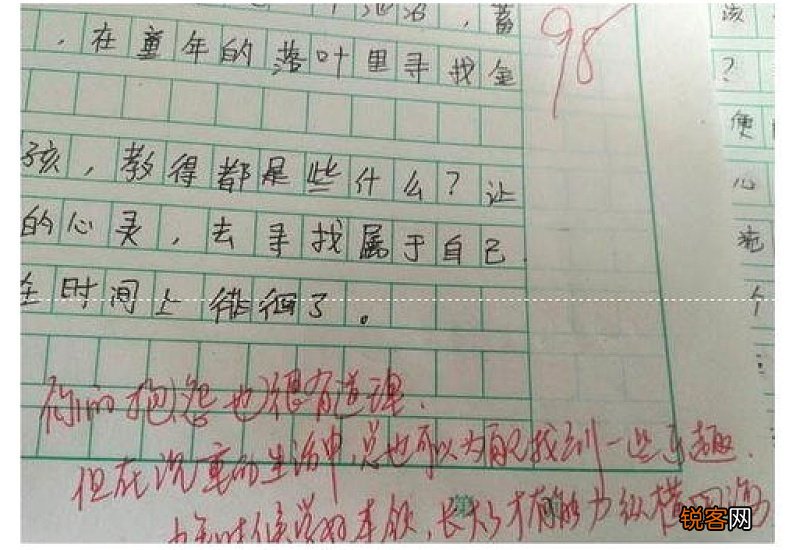 ，蓄
，在童年的落叶里寻找金
98
孩，教得都是些什么？让
的心灵，去寻找属于自己
在时间上徘徊了。
该
？
便
心
个
你的抱怨也很有道理.
但在沉重的生活中,总也可以为自己找到一些乐趣.
少年时候学好本领,长大了才有能力纵横四海
锐客网